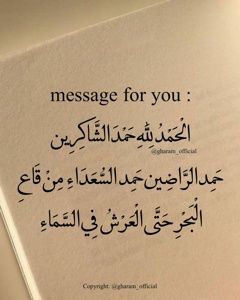 message for you :
الْحَمْدُ لِلَّهِ حَمْدَ الشَّاكِرِين
@gharam_official
حَمِد الرَّاضِين حَمِد السُّعَدَاءِ مِنْ قَاعِ
الْبَحْرِ حَتَّى الْعَرْشُ فِي السَّمَاءِ
Copyright: @gharam_official